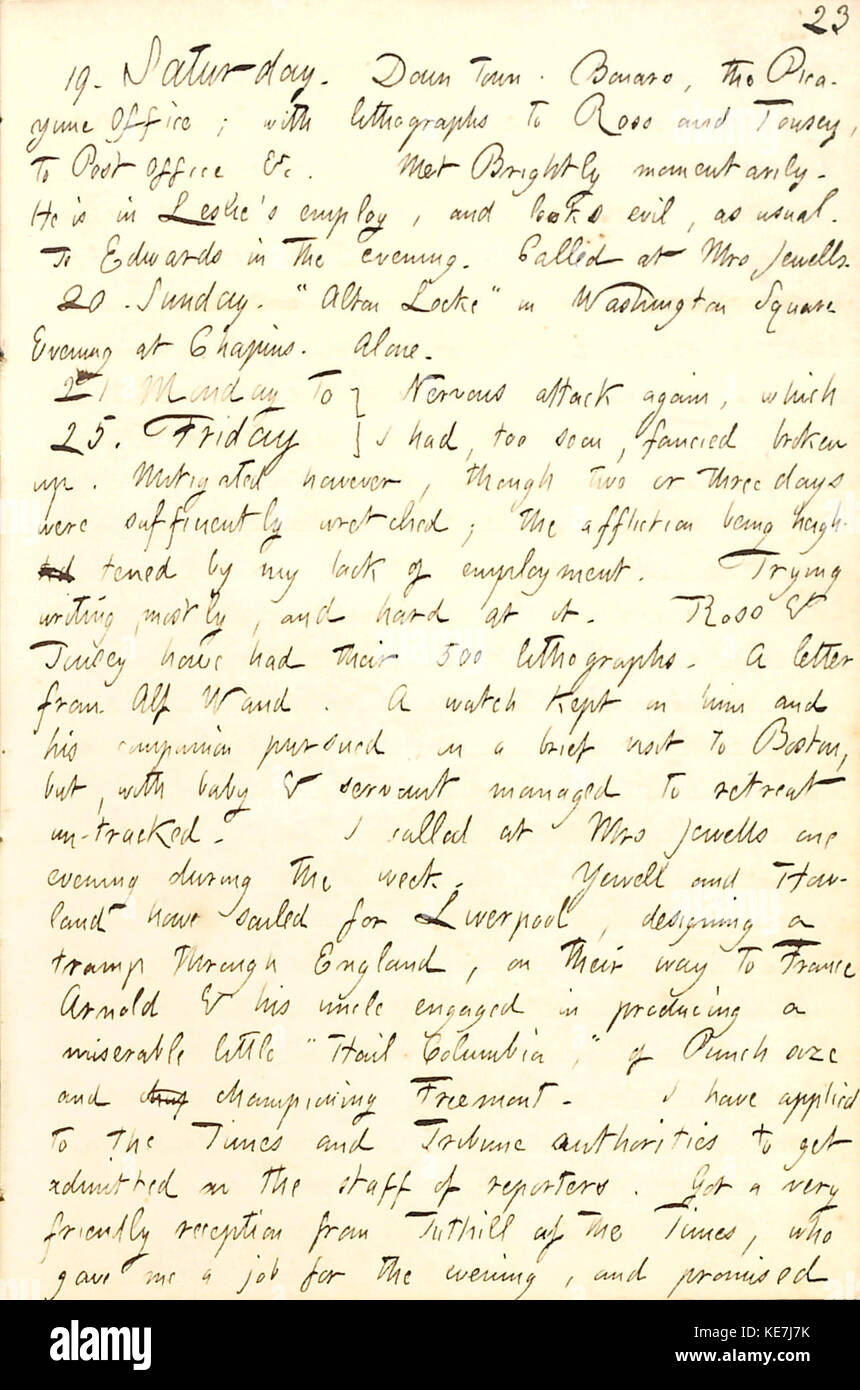 23
19. Saturday. Down town. Bonaro, the Pica-
yune Office; with lithographs to Ross and Tousey,
to Post Office &c. Met Brightly momentarily.
He is in Leslie's employ, and looks evil, as usual.
To Edwards in the evening. Called at Mrs Jewells.
20. Sunday. "Alton Locke" in Washington Square
Evening at Chapins. Alone.
21 Monday to } Nervous attack again, which
25. Friday } I had, too soon, fancied broken
up. Mitigated however, though two or three days
were sufficiently wretched; the affliction being heigh-
tened by my lack of employment. Trying
writing mostly, and hard at it. Ross &
Tousey have had their 500 lithographs. A letter
from Alf Waud. A watch kept on him and
his companion pursued on a brief visit to Boston,
but, with baby & servant managed to retreat
un-tracked. I called at Mrs Jewells one
evening during the week. Yewell and How-
land have sailed for Liverpool, designing a
tramp through England, on their way to France
Arnold & his uncle engaged in producing a
miserable little "Hail Columbia," of Punch size
and championing Freemont. I have applied
to the Times and Tribune authorities to get
admitted on the staff of reporters. Got a very
friendly reception from Tuthill of the Times, who
gave me a job for the evening, and promised
alamy
Image ID: KE7J7K
www.alamy.com